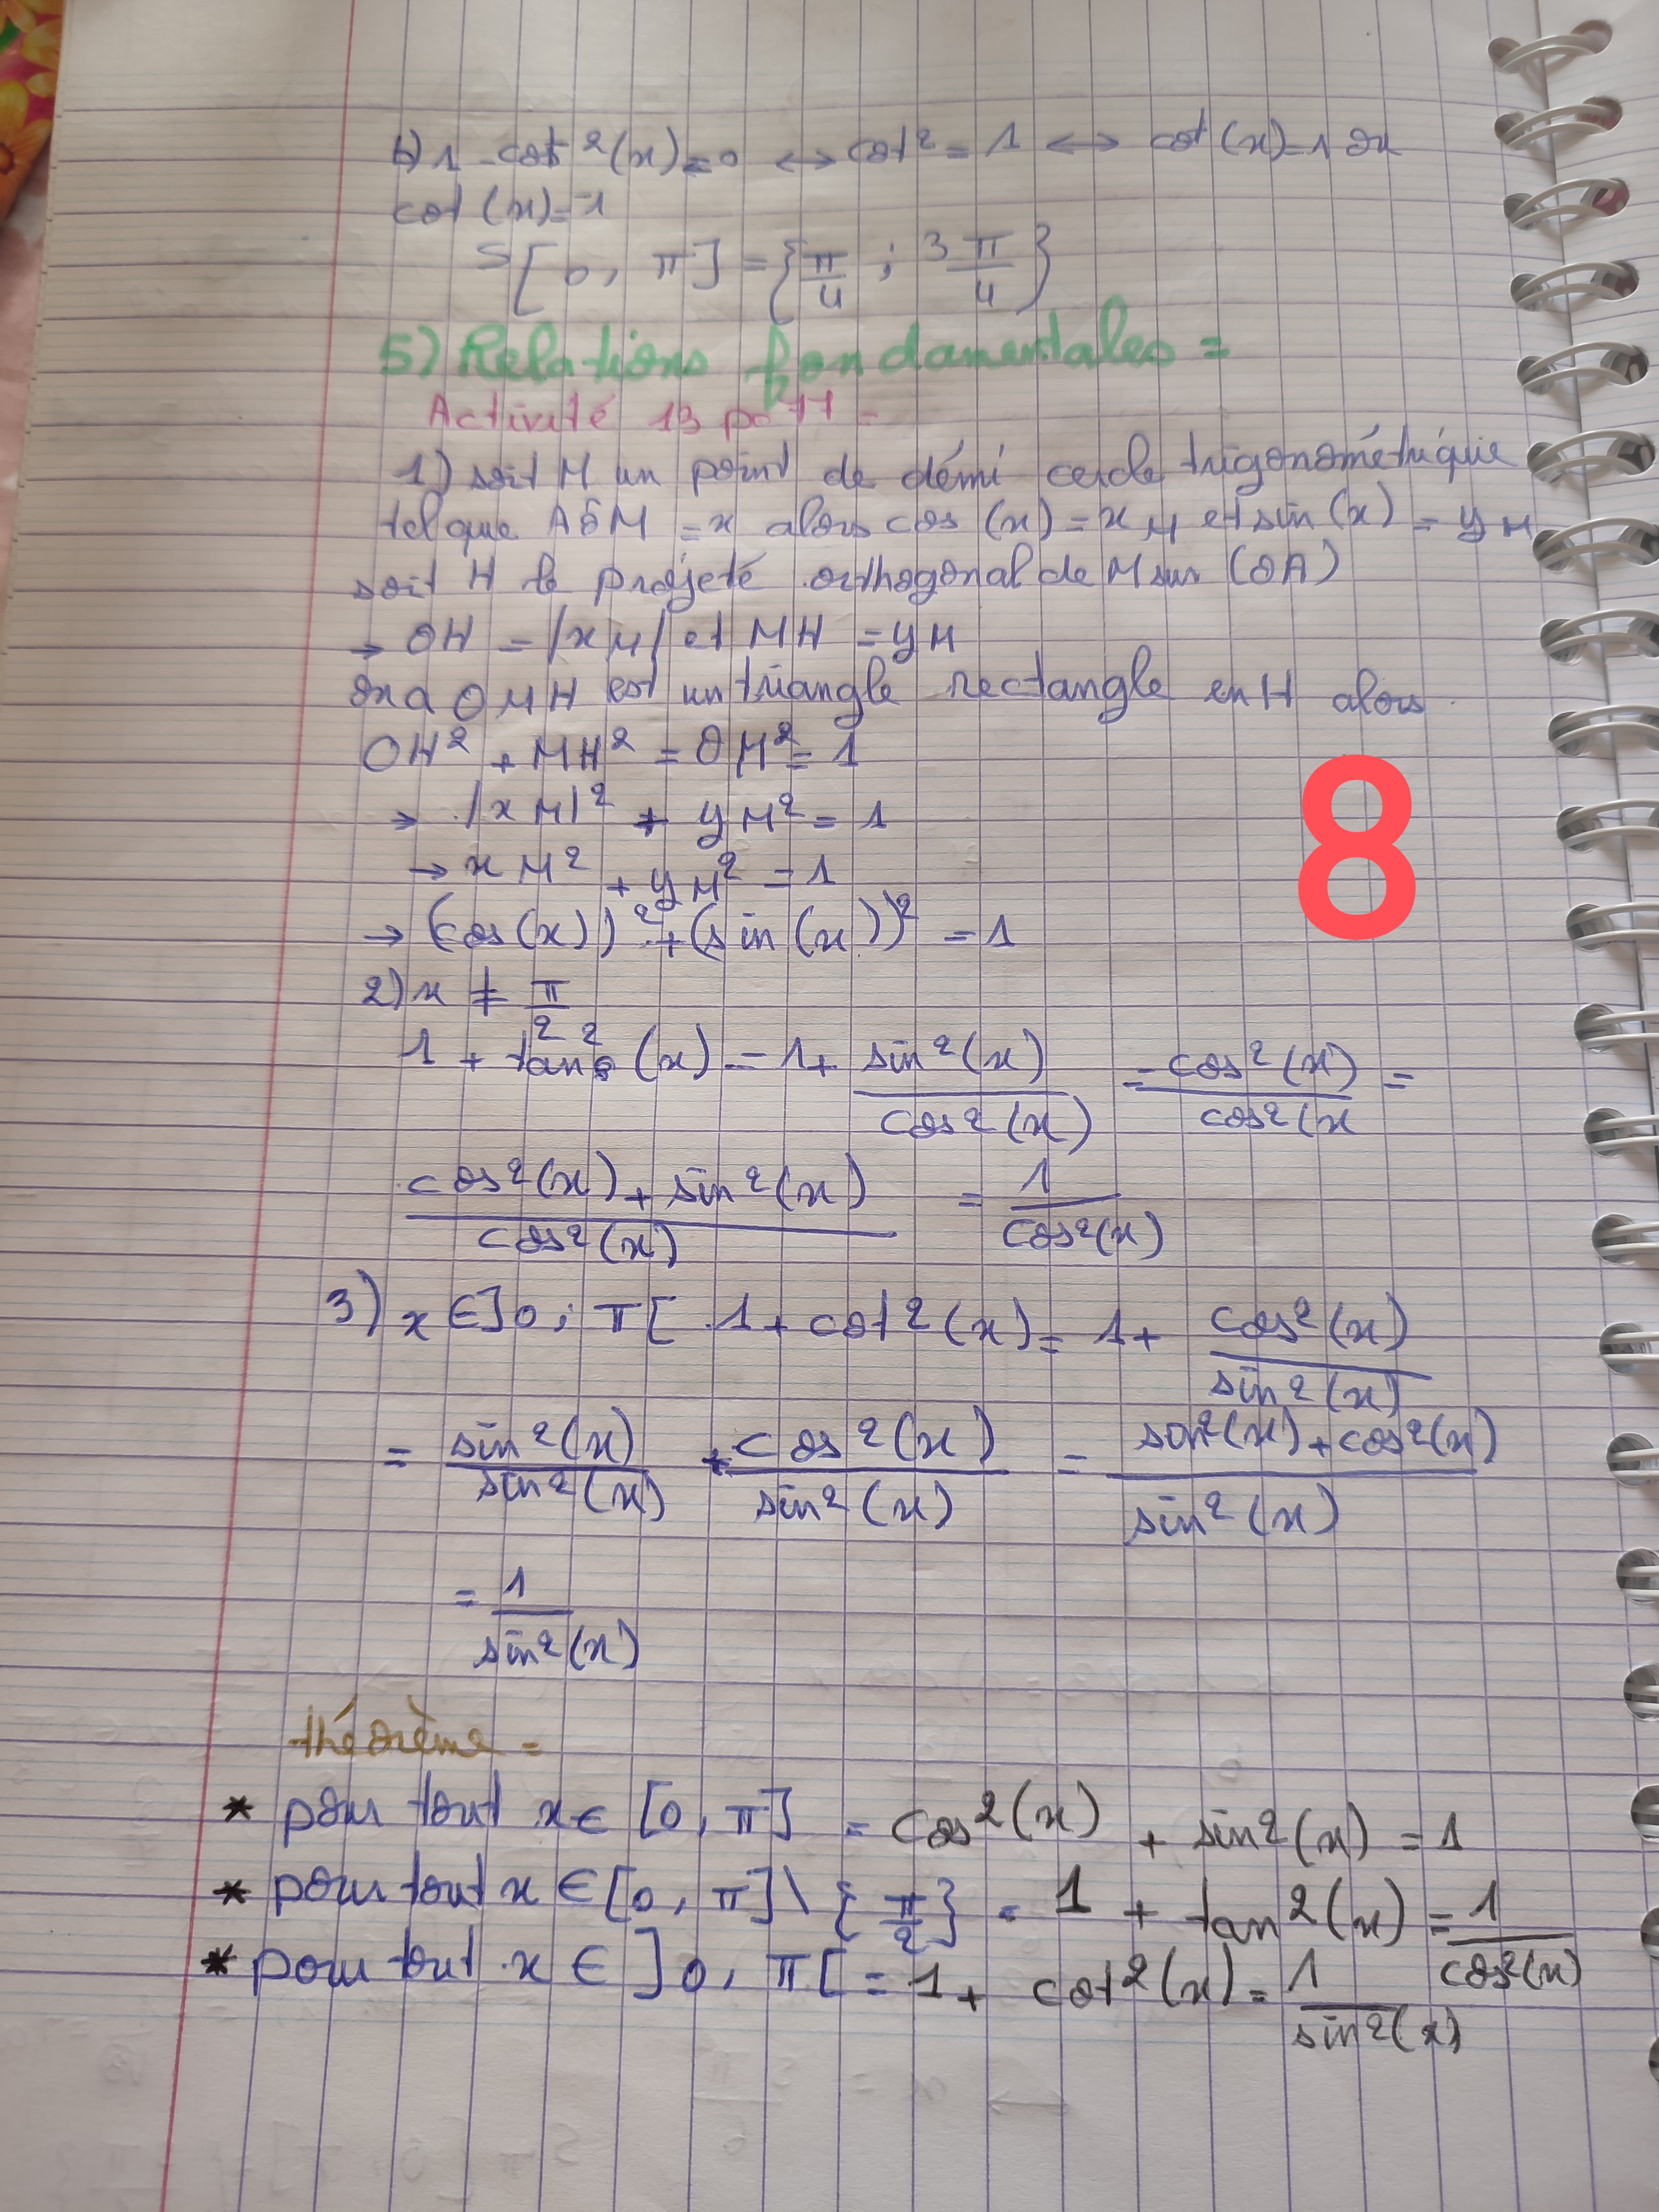 b) 1 - cot²(x) = 0 ↔ cot² = 1 ↔ cot(x) = 1 ou
cot(x) = -1
S[0, π] = {π/4 ; 3π/4}
5) Relations fondamentales =
Activité 13 p° 77 =
1) soit M un point de démi cercle trigonométrique
tel que AÔM = x alors cos(x) = xM et sin(x) = yM
soit H le projeté orthogonal de M sur (OA)
→ OH = |xM| et MH = yM
on a OMH est un triangle rectangle en H alors
OH² + MH² = OM² = 1
→ |xM|² + yM² = 1
→ xM² + yM² = 1
→ (cos(x))² + (sin(x))² = 1
2) x ≠ π/2
1 + tan²(x) = 1 + sin²(x)/cos²(x) = cos²(x)/cos²(x =
cos²(x) + sin²(x)/cos²(x) = 1/cos²(x)
3) x ∈ ]0 ; π[ 1 + cot²(x) = 1 + cos²(x)/sin²(x)
= sin²(x)/sin²(x) + cos²(x)/sin²(x) = sin²(x) + cos²(x)/sin²(x)
= 1/sin²(x)
théorème =
* pour tout x ∈ [0, π] = cos²(x) + sin²(x) = 1
* pour tout x ∈ [0, π] \ {π/2} = 1 + tan²(x) = 1/cos²(x)
* pour tout x ∈ ]0, π[ = 1 + cot²(x) = 1/sin²(x)
8